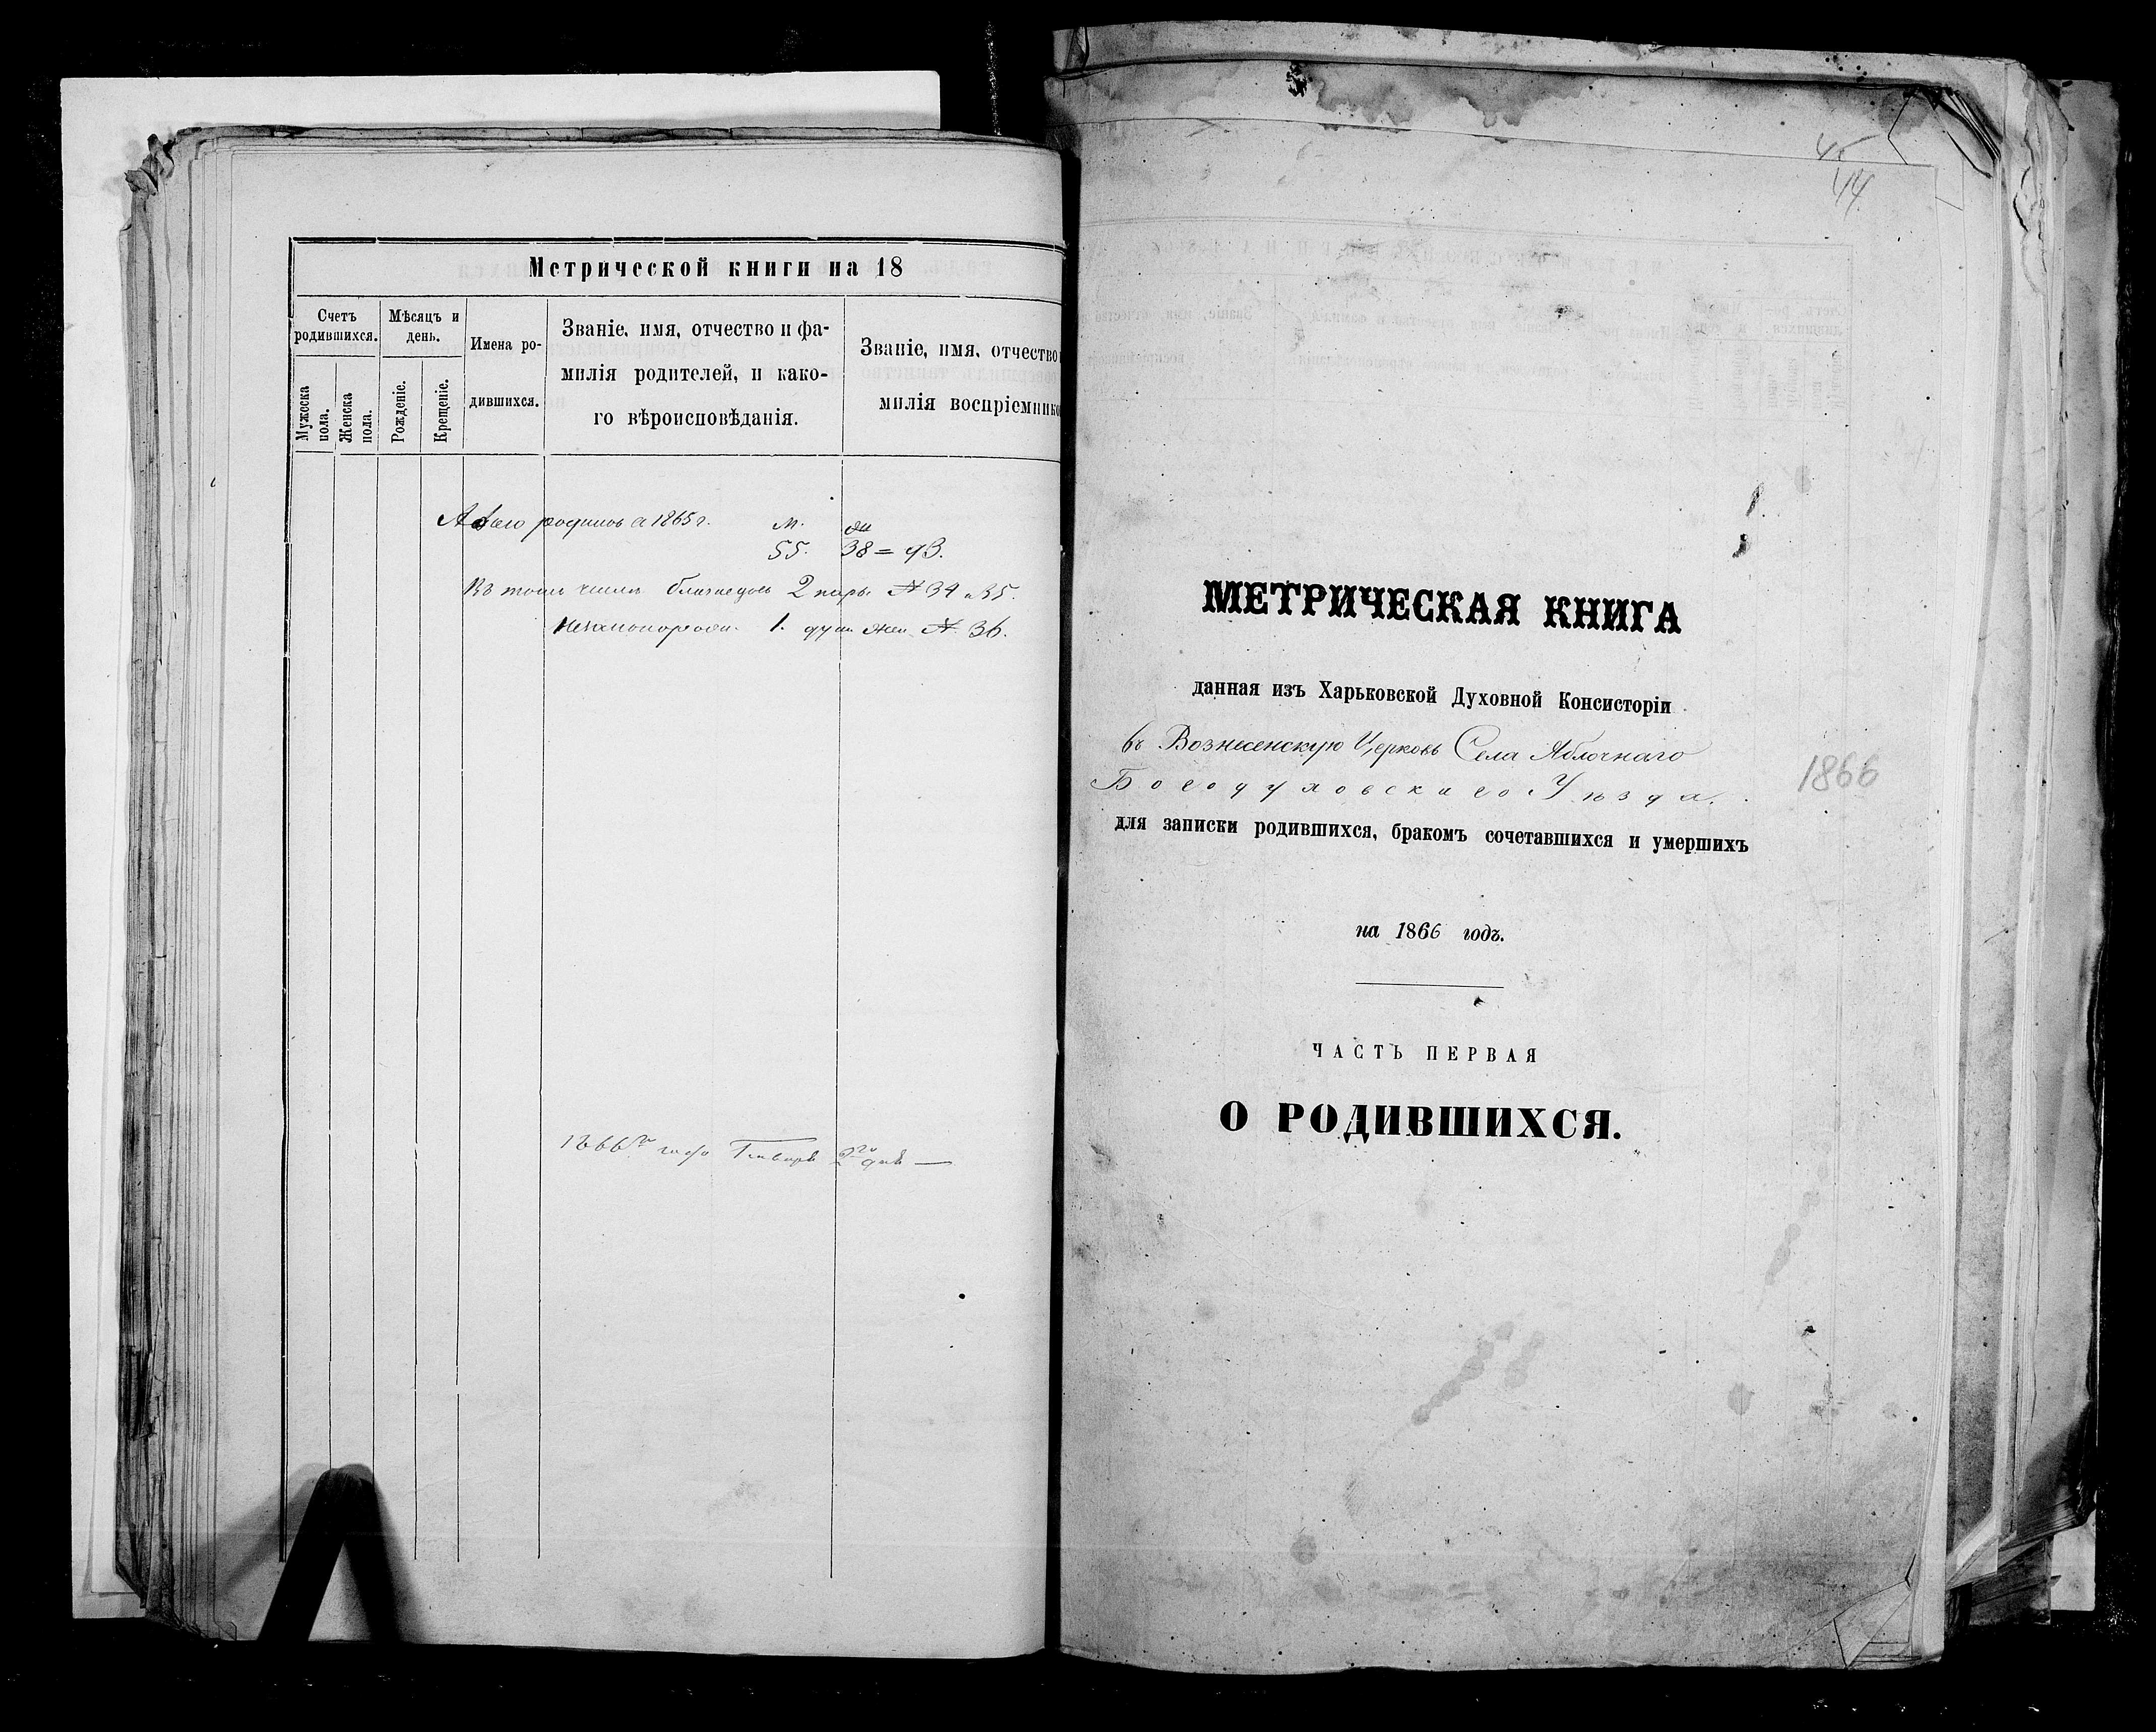 Метрической книги на 18
Счетъ родившихся.
Мужеска пола.
Женска пола.
Мѣсяцъ и день.
Рожденіе.
Крещеніе.
Имена ро-
дившихся.
Званіе, имя, отчество и фа-
милія родителей, и како-
го вѣроисповѣданія.
Званіе, имя, отчество
милія воспріемнико
родилось въ 1865 г. м. ж.
55. 38 = 93.
Въ томъ числѣ близнецовъ 2 пары № 34 и 35.
1. душ. жен. № 36.
1866го года Генваря дня —
45
44
МЕТРИЧЕСКАЯ КНИГА
данная изъ Харьковской Духовной Консисторіи
въ Вознесенскую Церковь Села Яблочнаго
Богодуховскаго Уѣзда.
1866
для записки родившихся, бракомъ сочетавшихся и умершихъ
на 1866 годъ.
ЧАСТЬ ПЕРВАЯ
О РОДИВШИХСЯ.